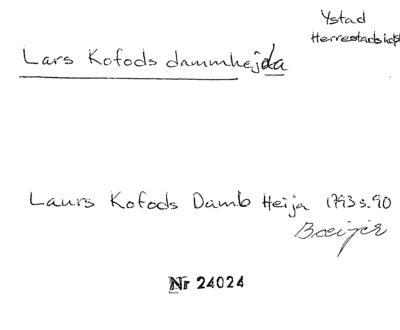 Ystad
Herrestads hd
Lars Kofods dammhejda
Laurs Kofods Damb Heija 1793 s. 90
Nr 24024